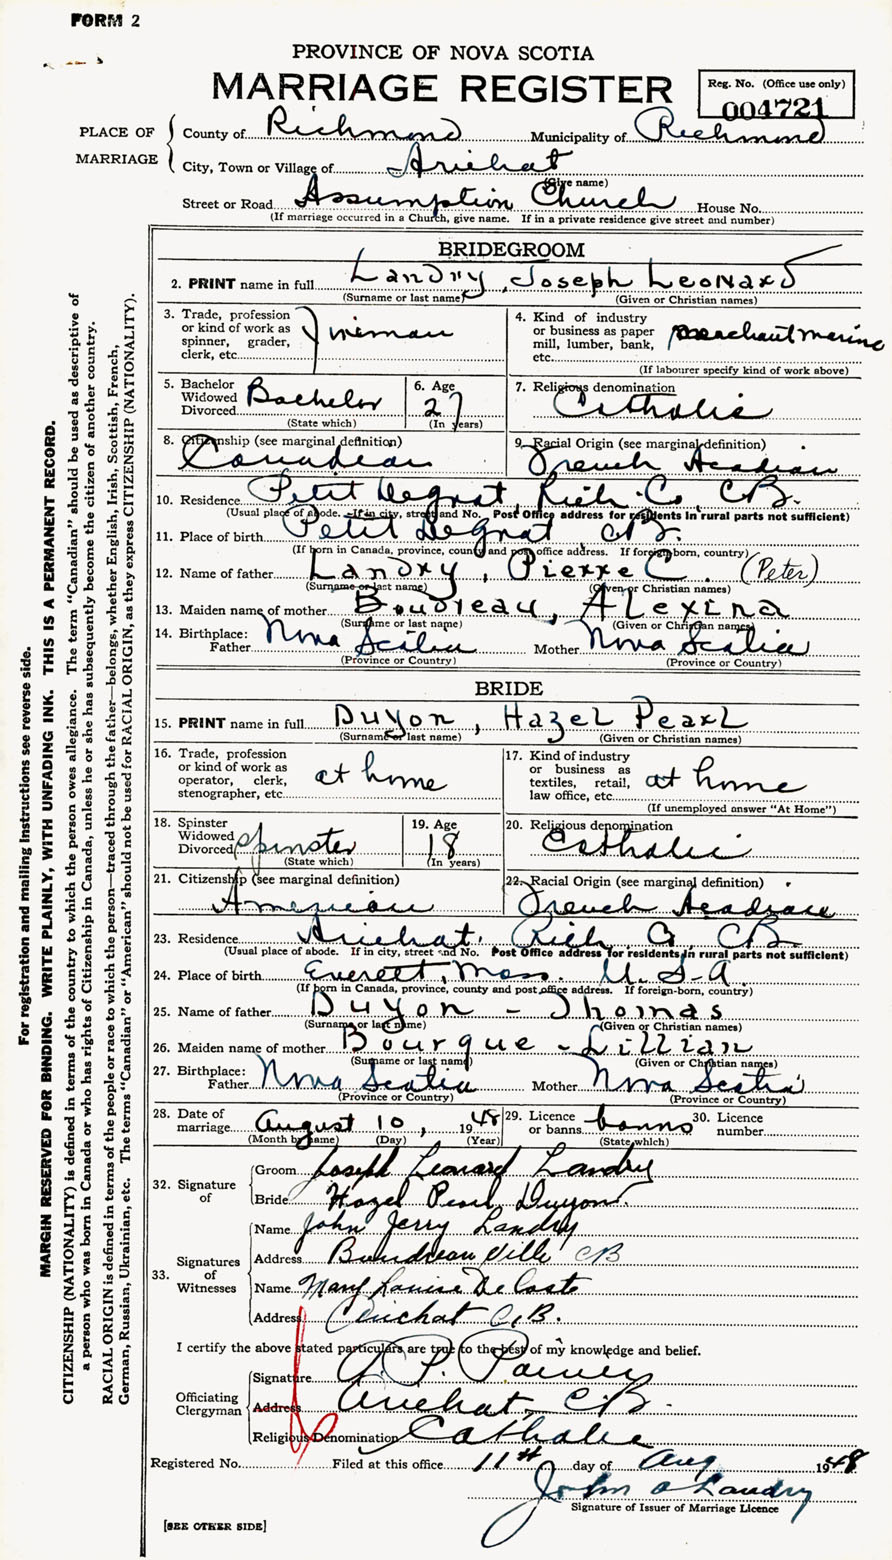 FORM 2
PROVINCE OF NOVA SCOTIA
MARRIAGE REGISTER
Reg. No. (Office use only)
004721
PLACE OF MARRIAGE
County of Richmond Municipality of Richmond
City, Town or Village of Arichat
(Give name)
Street or Road Assumption Church House No.
(If marriage occurred in a Church, give name. If in a private residence give street and number)
BRIDEGROOM
2. PRINT name in full Landry, Joseph Leonard
(Surname or last name) (Given or Christian names)
3. Trade, profession or kind of work as spinner, grader, clerk, etc. Fireman
4. Kind of industry or business as paper mill, lumber, bank, etc. merchant marine
(If labourer specify kind of work above)
5. Bachelor Widowed Divorced Bachelor
(State which)
6. Age 27
(In years)
7. Religious denomination Catholic
8. Citizenship (see marginal definition) Canadian
9. Racial Origin (see marginal definition) French Acadian
10. Residence Petit Degrat, Rich. Co, CB.
(Usual place of abode. If in city, street and No. Post Office address for residents in rural parts not sufficient)
11. Place of birth Petit Degrat, CB.
(If born in Canada, province, county and post office address. If foreign born, country)
12. Name of father Landry, Pierre C. (Peter)
(Surname or last name) (Given or Christian names)
13. Maiden name of mother Boudreau, Alexina
(Surname or last name) (Given or Christian names)
14. Birthplace: Father Nova Scotia Mother Nova Scotia
(Province or Country) (Province or Country)
BRIDE
15. PRINT name in full Duyon, Hazel Pearl
(Surname or last name) (Given or Christian names)
16. Trade, profession or kind of work as operator, clerk, stenographer, etc. at home
17. Kind of industry or business as textiles, retail, law office, etc. at home
(If unemployed answer "At Home")
18. Spinster Widowed Divorced spinster
(State which)
19. Age 18
(In years)
20. Religious denomination Catholic
21. Citizenship (see marginal definition) American
22. Racial Origin (see marginal definition) French Acadian
23. Residence Arichat. Rich. Co, CB
(Usual place of abode. If in city, street and No. Post Office address for residents in rural parts not sufficient)
24. Place of birth Everett, Mass. U.S.A.
(If born in Canada, province, county and post office address. If foreign-born, country)
25. Name of father Duyon - Thomas
(Surname or last name) (Given or Christian names)
26. Maiden name of mother Bourque - Lillian
(Surname or last name) (Given or Christian names)
27. Birthplace: Father Nova Scotia Mother Nova Scotia
(Province or Country) (Province or Country)
28. Date of marriage August 10, 1948
(Month by name) (Day) (Year)
29. Licence or banns banns
(State which)
30. Licence number
32. Signature of
Groom Joseph Leonard Landry
Bride Hazel Pearl Duyon.
33. Signatures of Witnesses
Name John Jerry Landry
Address Boudreauville CB
Name Mary Louise DeCoste
Address Arichat C.B.
I certify the above stated particulars are true to the best of my knowledge and belief.
Officiating Clergyman
Signature A. P. Poirier
Address Arichat, CB.
Religious Denomination Catholic
Registered No. Filed at this office 11th day of Aug 1948
John A Landry
Signature of Issuer of Marriage Licence
[SEE OTHER SIDE]
For registration and mailing instructions see reverse side.
MARGIN RESERVED FOR BINDING. WRITE PLAINLY, WITH UNFADING INK. THIS IS A PERMANENT RECORD.
CITIZENSHIP (NATIONALITY) is defined in terms of the country to which the person owes allegiance. The term "Canadian" should be used as descriptive of
a person who was born in Canada or who has rights of Citizenship in Canada, unless he or she has subsequently become the citizen of another country.
RACIAL ORIGIN is defined in terms of the people or race to which the person—traced through the father—belongs, whether English, Irish, Scottish, French,
German, Russian, Ukrainian, etc. The terms "Canadian" or "American" should not be used for RACIAL ORIGIN, as they express CITIZENSHIP (NATIONALITY).